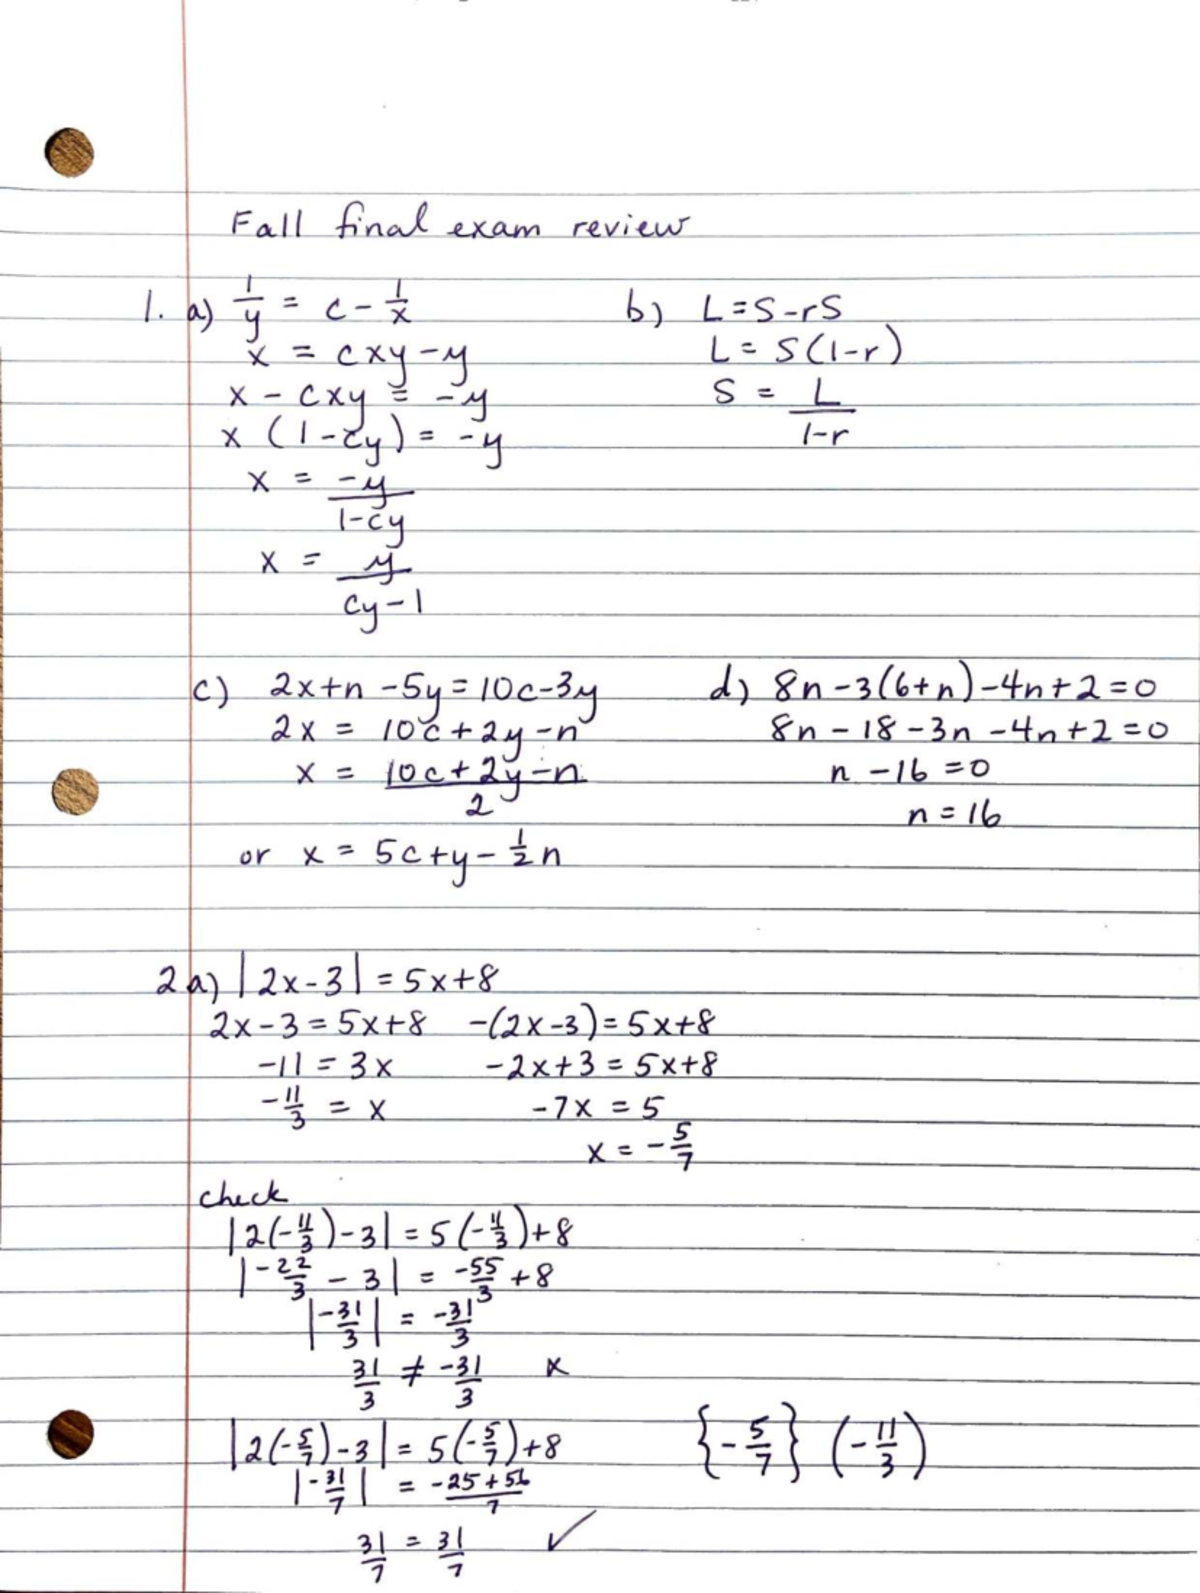 Fall final exam review
1. a) 1/y = c - 1/x
x = cxy - y
x - cxy = -y
x (1 - cy) = -y
x = -y/(1-cy)
x = y/(cy-1)
b) L = S - rS
L = S(1-r)
S = L/(1-r)
c) 2x+n -5y = 10c-3y
2x = 10c+2y-n
x = (10c+2y-n)/2
or x = 5c+y - 1/2 n
d) 8n -3(6+n) -4n+2 = 0
8n - 18 -3n -4n+2 = 0
n -16 = 0
n = 16
2 a) |2x-3| = 5x+8
2x-3 = 5x+8 -(2x-3) = 5x+8
-11 = 3x -2x+3 = 5x+8
-11/3 = x -7x = 5
x = -5/7
check
|2(-11/3)-3| = 5(-11/3)+8
|-22/3 - 3| = -55/3 +8
|-31/3| = -31/3
31/3 ≠ -31/3 x
|2(-5/7)-3| = 5(-5/7)+8 {-5/7} (-11/3)
|-31/7| = (-25+56)/7
31/7 = 31/7 ✓